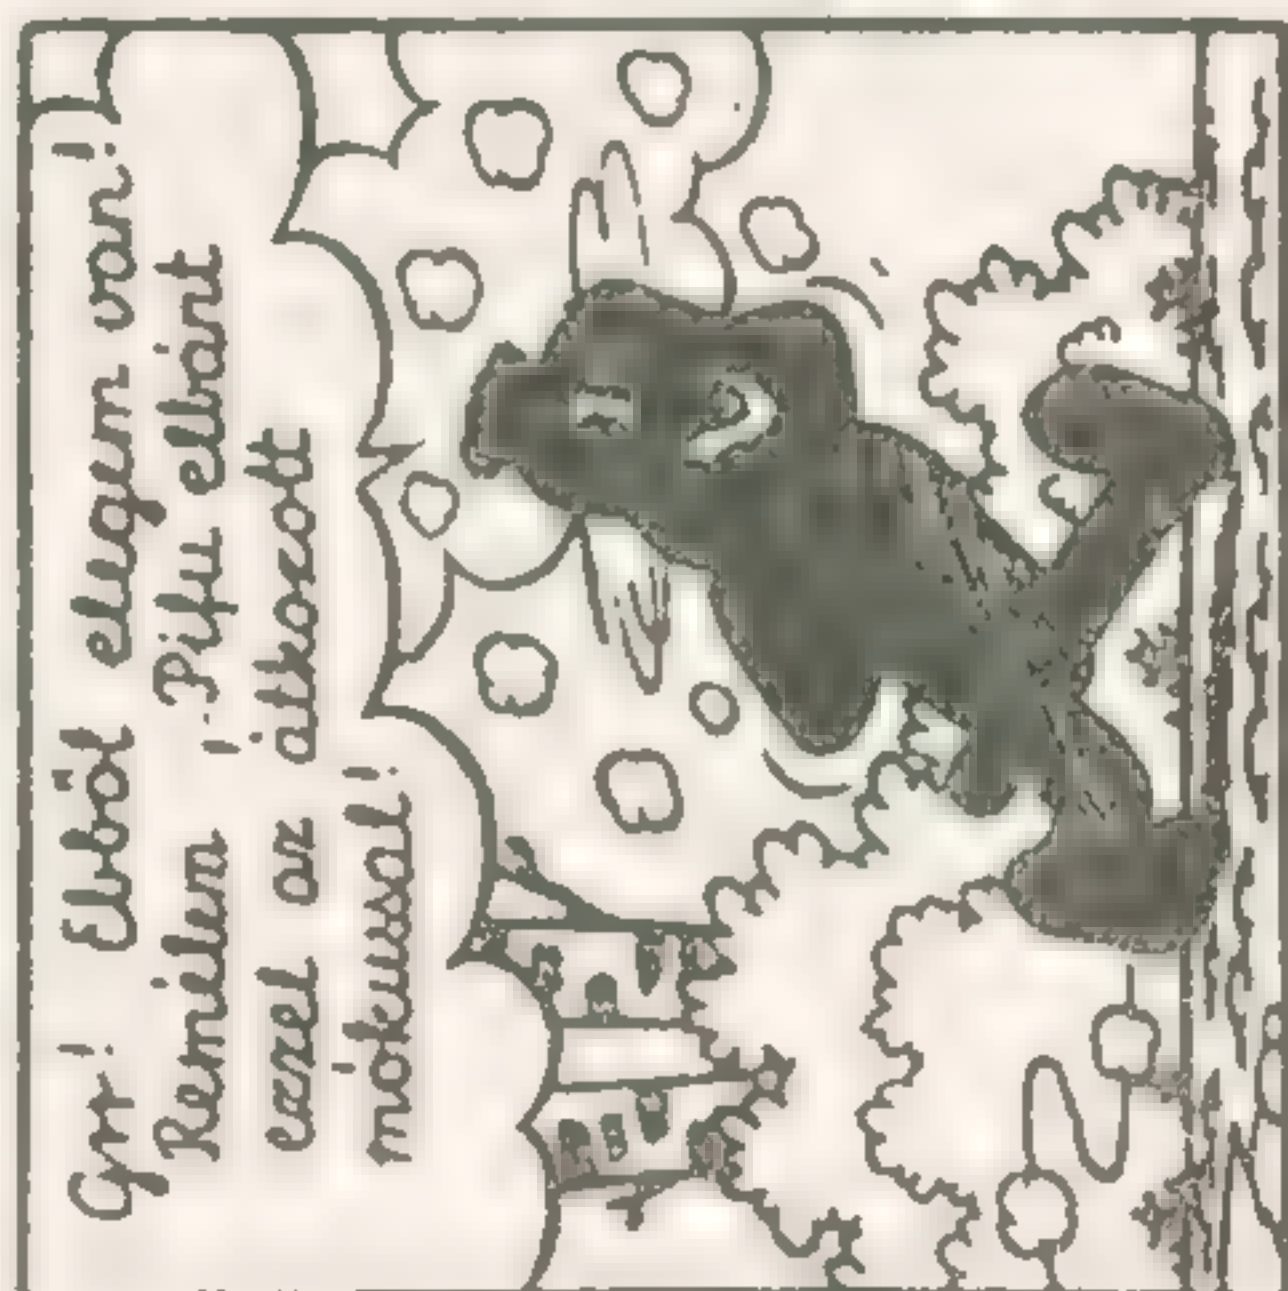 Grr! Ebből elegem van!
Remélem, Pifu elbánt
ezzel az átkozott
mókussal!